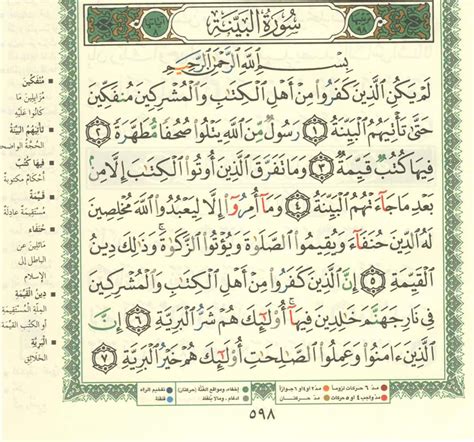 سُورَةُ البَيِّنَةِ
بِسْمِ ٱللَّهِ ٱلرَّحْمَٰنِ ٱلرَّحِيمِ
لَمْ يَكُنِ ٱلَّذِينَ كَفَرُوا۟ مِنْ أَهْلِ ٱلْكِتَٰبِ وَٱلْمُشْرِكِينَ مُنفَكِّينَ
حَتَّىٰ تَأْتِيَهُمُ ٱلْبَيِّنَةُ ١ رَسُولٌ مِّنَ ٱللَّهِ يَتْلُوا۟ صُحُفًا مُّطَهَّرَةً ٢
فِيهَا كُتُبٌ قَيِّمَةٌ ٣ وَمَا تَفَرَّقَ ٱلَّذِينَ أُوتُوا۟ ٱلْكِتَٰبَ إِلَّا مِنۢ
بَعْدِ مَا جَآءَتْهُمُ ٱلْبَيِّنَةُ ٤ وَمَآ أُمِرُوٓا۟ إِلَّا لِيَعْبُدُوا۟ ٱللَّهَ مُخْلِصِينَ
لَهُ ٱلدِّينَ حُنَفَآءَ وَيُقِيمُوا۟ ٱلصَّلَوٰةَ وَيُؤْتُوا۟ ٱلزَّكَوٰةَ ۚ وَذَٰلِكَ دِينُ
ٱلْقَيِّمَةِ ٥ إِنَّ ٱلَّذِينَ كَفَرُوا۟ مِنْ أَهْلِ ٱلْكِتَٰبِ وَٱلْمُشْرِكِينَ
فِى نَارِ جَهَنَّمَ خَٰلِدِينَ فِيهَآ ۚ أُو۟لَٰٓئِكَ هُمْ شَرُّ ٱلْبَرِيَّةِ ٦ إِنَّ
ٱلَّذِينَ ءَامَنُوا۟ وَعَمِلُوا۟ ٱلصَّٰلِحَٰتِ أُو۟لَٰٓئِكَ هُمْ خَيْرُ ٱلْبَرِيَّةِ ٧
مُنفَكِّينَ
مُزَايِلِينَ مَا
كَانُوا عَلَيْهِ
تَأْتِيَهُمُ البَيِّنَةُ
الحُجَّةُ الواضح
فِيهَا كُتُبٌ
أحْكَامٌ مَكْتُوبَةٌ
قَيِّمَةٌ
مُسْتَقِيمَةٌ عَادِلَةٌ
حُنَفَاءَ
مَائِلِينَ عَنِ
الباطِلِ إلى
الإسْلامِ
دِينُ القَيِّمَةِ
المِلَّةِ المُسْتَقِيمَةِ
أو الكُتُبِ القَيِّمَةِ
البَرِيَّةِ
الخَلائِقِ
مدّ ٦ حركات لزوماً مدّ ٢ أو ٤ أو ٦ جوازاً إخفاء، ومواقع الغُنَّة (حركتان) تفخيم الراء
مدّ واجب ٤ أو ٥ حركات مدّ حركتان ادغام، وما لا يُلفظ قلقلة
٥٩٨